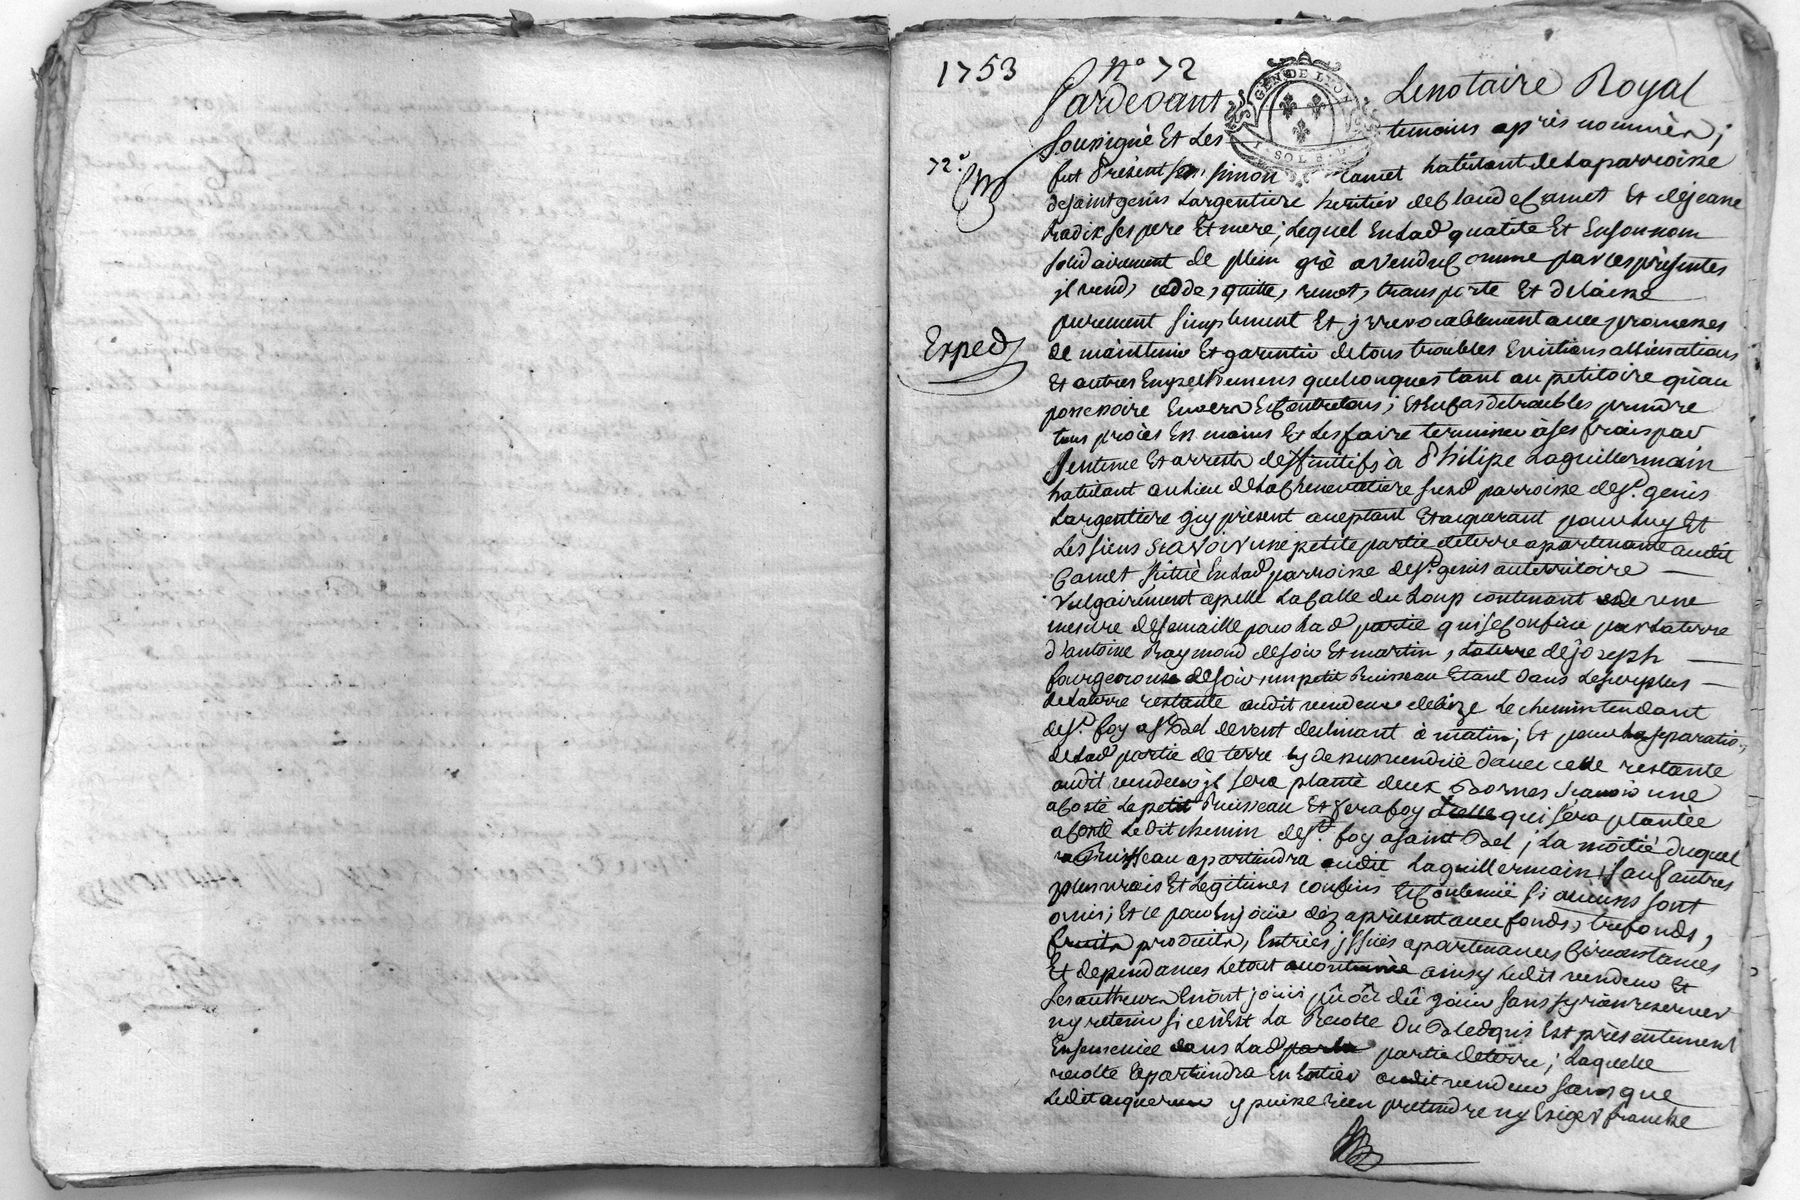 1753 N° 72
GEN DE LYON
SOL 8 D
Pardevant Le notaire Royal
soussigné Et Les temoins après nommés ;
72e
fut Présent Simon Camet habitant de La parroisse
de saint genis Largentiere heritier de Claude Camet Et de jeanne
Radix ses pere Et mere ; Lequel En Lad qualité Et En son nom
solidairement de plein gré a vendu Comme par Les présentes
jl vend, cedde, quitte, remet, transporte Et delaisse
purement simplement Et jrrevocablement avec promesses
Exped
de maintenir Et garentir de tous troubles Evictions allienations
Et autres Empechemens quelconques tant au petitoire qu'au
possessoire Envers Et Contre tous ; Et En Cas de troubles prendre
tous procès En mains Et Les faire terminer à ses frais par
sentence Et arrests deffinitifs à Philipe Laguillermain
habitant au Lieu de La Chenevatiere susd parroisse de St. genis
Largentiere jcy présent acceptant Et acquerant pour Luy Et
Les siens scavoir une petite partie de terre apartenante audit
Camet située En Lad parroisse de St. genis au territoire
vulgairement apellé La Calle du Loup contenant une
mesure de semaille pour Lad partie qui se Confine par La terre
d'antoine Raymond de soir Et martin, La terre de joseph
fougerouse de soir, un petit Ruisseau Etant dans Le surplus
de La terre restante audit vendeur de bize Le chemin tendant
de Ste. foy a St Bel de vent declinant à matin ; Et pour La separation
de Lad partie de terre cy dessus vendüe d'avec celle restante
audit vendeur jl sera planté deux Bornes scavoir une
a Costé Le petit Ruisseau Et fera foy celle qui sera plantée
a Costé Ledit chemin de Ste foy a saint Bel ; La moitié duquel
Ruisseau apartiendra audit Laguillermain ; sauf autres
plus vrais Et Legitimes confins Et Contenüe si aucuns sont
omis ; Et ce pour En jouir dèz aprèsent avec fonds, trefonds,
fruits produits, Entrées, jssües apartenances Circonstances
Et dependances Le tout ainsy Ledit vendeur Et
ses autheurs En ont joüi, pû où dû joüir sans sy rien reserver
ny retenir si ce n'Est La Recolte du Bled qui Est présentement
Ensemencée dans Lad partie de terre ; Laquelle
recolte apartiendra En Entier audit vendeur sans que
Ledit acquereur y puisse rien pretendre ny Exiger franche